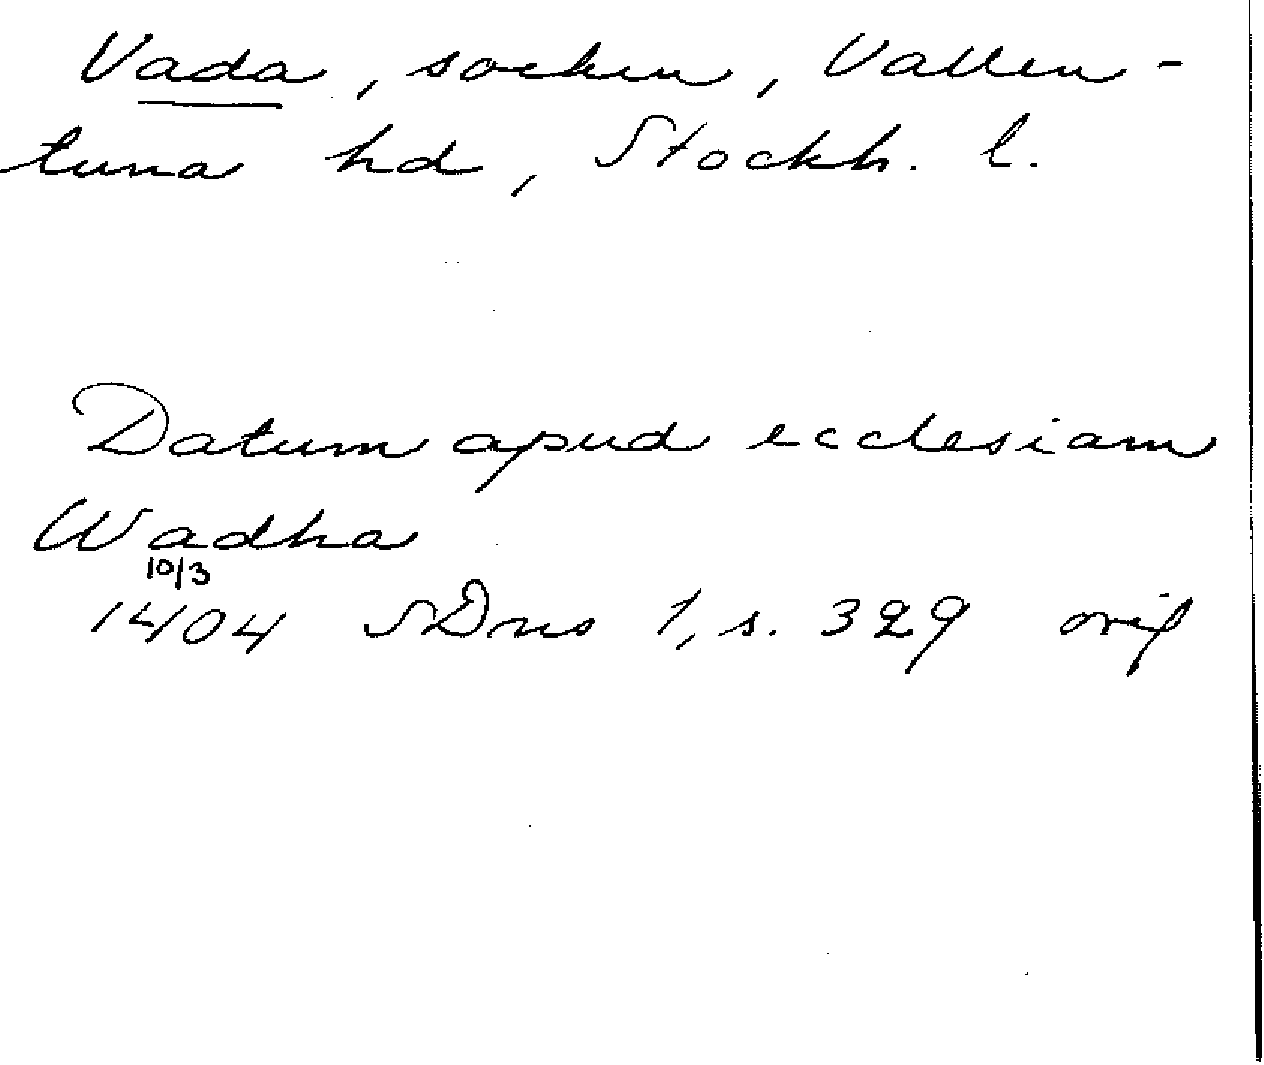 Vada, socken, Vallen-
tuna hd, Stockh. l.
Datum apud ecclesiam
Wadha
10/3
1404 SDns 1, s. 329 orig